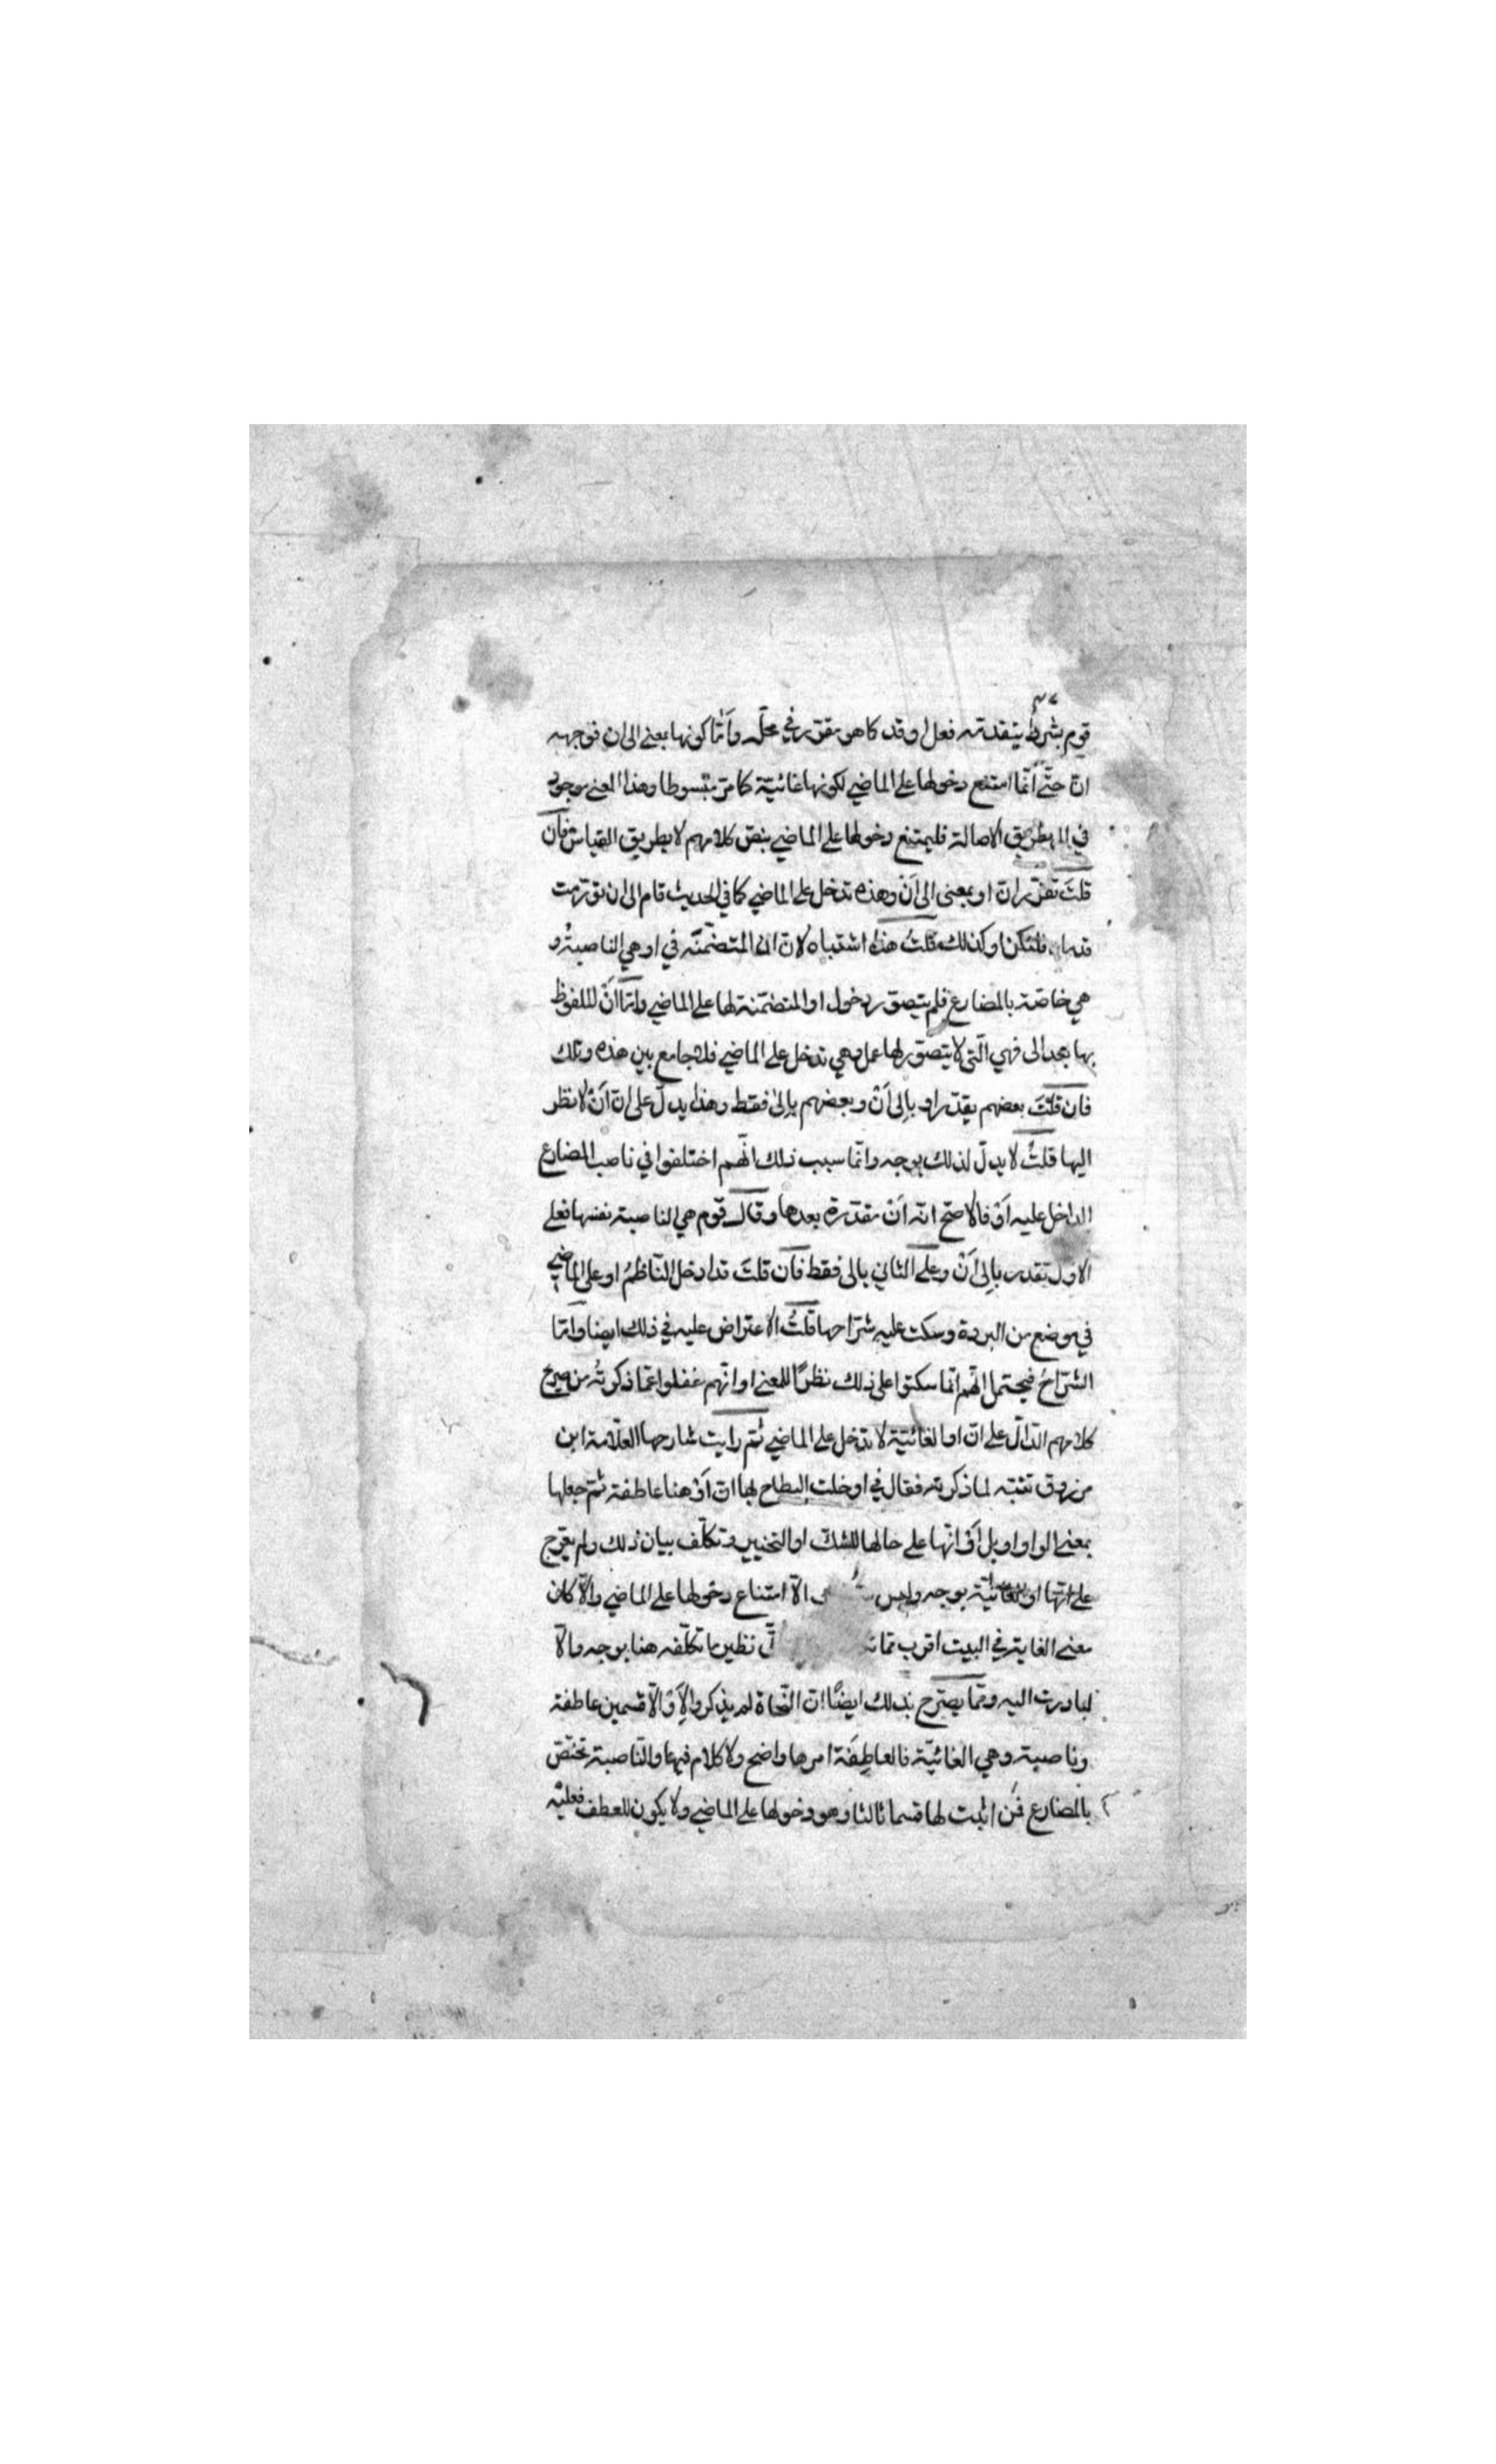 قوم بشرط يتقدمه فعل او قد كما هو مقرر في محلّه وأمّا كونها بمعنى الى ان فوجهه
انّ حتّى انّما امتنع دخولها على الماضي لكونها غائيّة كما مرّ مبسوطا وهذا المعنى موجود
في بطريق الاصالة فليمتنع دخولها على الماضي بنصّ كلامهم لا بطريق القياس فان
قلتَ تقرّر انّ او بمعنى الى اَنْ وهذه تدخل على الماضي كما في الحديث قام الى ان تورّمت
قدماه فلتكن او كذلك قلتُ هذا اشتباه لانّ المتضمّنه في او هي الناصبةُ و
هي خاصّة بالمضارع فلم يتصوّر دخول او المتضمّنة لها على الماضي وامّا انْ الملفوظ
بها بعد الى فهي الّتى لا يتصوّر لها عمل وهي تدخل على الماضي فلا جامع بين هذه وتلك
فان قلتَ بعضهم يقدّر او بالى اَنْ وبعضهم بالى فقط وهذا يدلّ على انّ اَنْ لا نظر
اليها قلتُ لا يدلّ لذلك بوجه وانّما سبب ذلك انّهم اختلفوا في ناصب المضارع
الداخل عليه اَوْ فالاصحّ انّه اَنْ مقدّرة بعدها وقال قوم هي الناصبة بنفسها فعلى
الاوّل تقدر بالى اَنْ وعلى الثاني بالى فقط فان قلتَ قد ادخل النّاظمُ او على الماضي
في موضع من البردة وسكت عليه شرّاحها قلتُ الاعتراض عليه في ذلك ايضا وامّا
الشرّاحُ فيحتمل انّهم انّما سكتوا على ذلك نظرًا للمعنى او انّهم غفلوا عمّا ذكرتُه من صريح
كلامهم الدّالّ على انّ او الغائيّة لا تدخل على الماضي ثمّ رايت شارحها العلّامة ابن
مرزوق تنبّه لما ذكرته فقال في او خلت البطاح بها انّ اَوْ هنا عاطفة ثمّ جعلها
بمعنى الواو او بل اَوْ انّها على حالها للشكّ او التخيير وتكلّف بيان ذلك ولم يعرّج
على انّها او الغائيّة بوجه وليس الّا امتناع دخولها على الماضي والّا كان
معنى الغاية في البيت اقرب ممّا نظير ما تكلّفه هنا بوجه والّا
لبادرت اليه وممّا يصرّح بذلك ايضًا انّ النّحاة لم يذكروا لِاَوْ الّا قسمين عاطفة
وناصبة وهي الغائيّة فالعاطِفَة امرها واضح ولا كلام فيها والنّاصبة تختصّ
بالمضارع فمن اثبت لها قسما ثالثا وهو دخولها على الماضي ولا يكون للعطف فعليْه